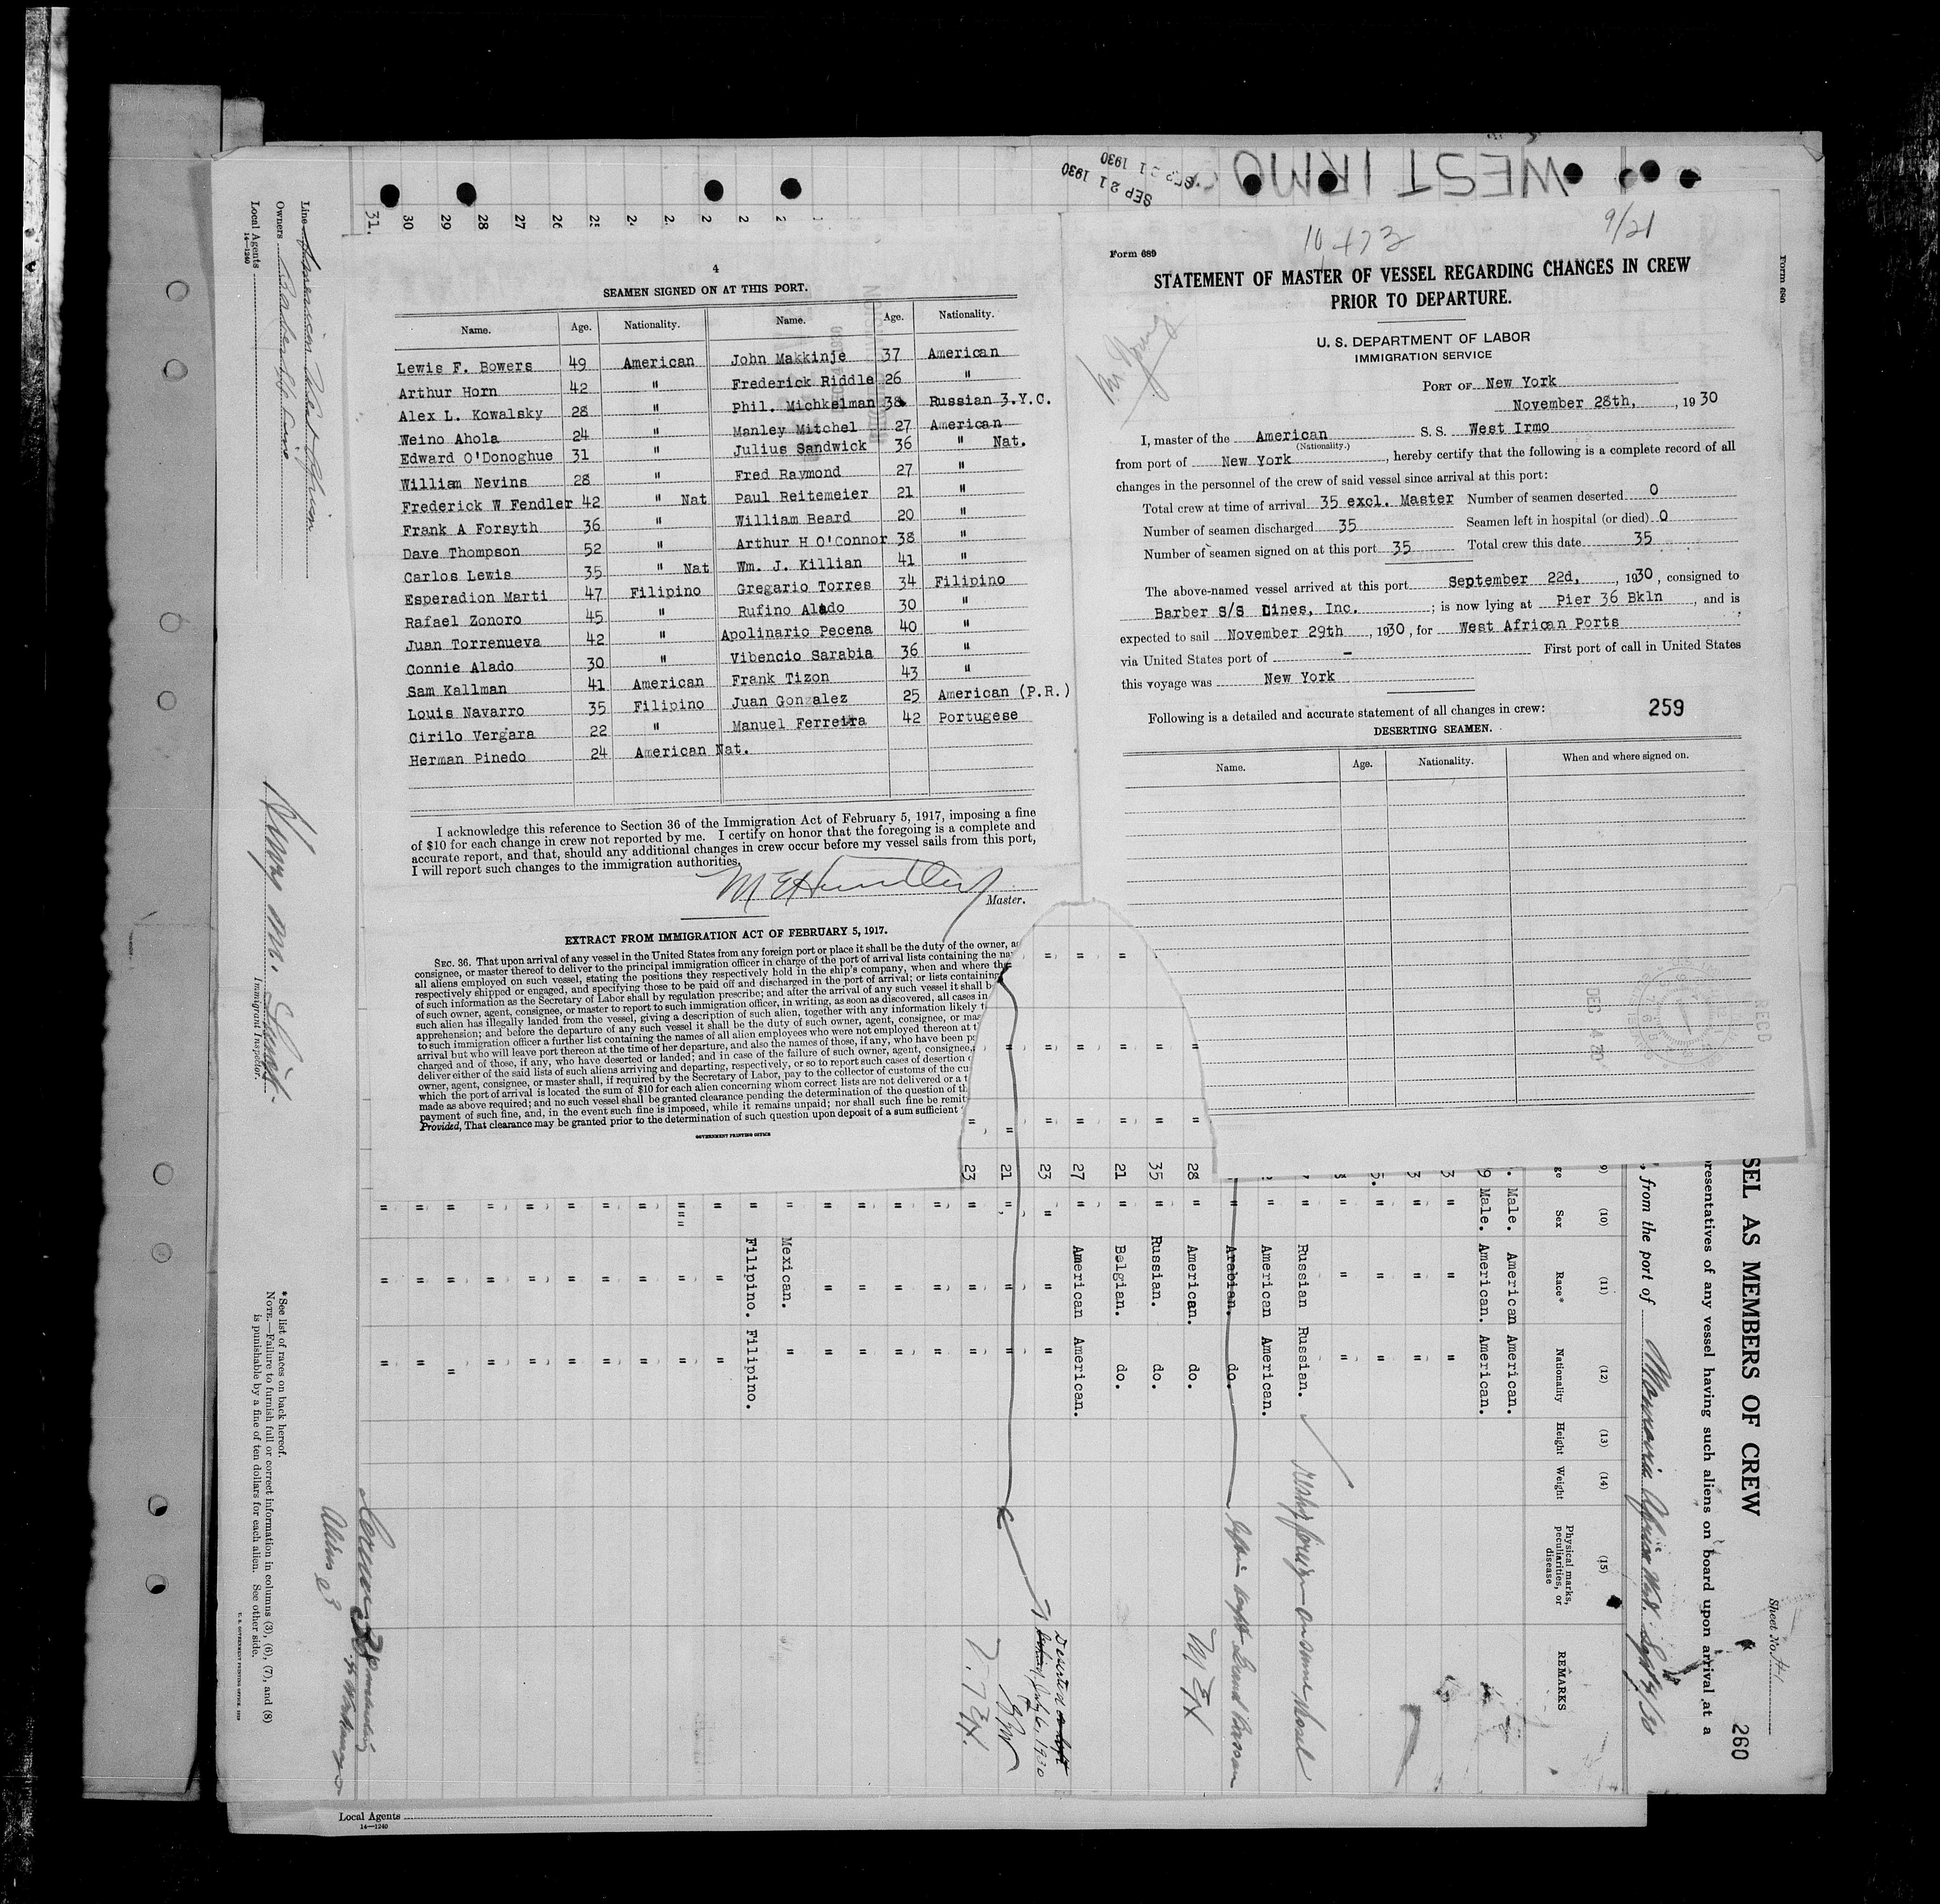 WEST IRMO
SEP 21 1930
SEP 21 1930
31. 30 29 28 27 26
4
SEAMEN SIGNED ON AT THIS PORT.
Name. Age. Nationality. Name. Age. Nationality.
Lewis F. Bowers 49 American John Makkinje 37 American
Arthur Horn 42 " Frederick Riddle 26 "
Alex L. Kowalsky 28 " Phil. Michkelman 38 Russian 3.Y.C.
Weino Ahola 24 " Manley Mitchel 27 American
Edward O'Donoghue 31 " Julius Sandwick 36 " Nat.
William Nevins 28 Fred Raymond 27 "
Frederick W Fendler 42 " Nat Paul Reitemeier 21 "
Frank A Forsyth 36 " William Beard 20 "
Dave Thompson 52 " Arthur H O'Connor 38 "
Carlos Lewis 35 " Nat Wm. J. Killian 41 "
Esperadion Marti 47 Filipino Gregario Torres 34 Filipino
Rafael Zonoro 45 " Rufino Alado 30 "
Juan Torrenueva 42 " Apolinario Pecena 40 "
Connie Alado 30 " Vibencio Sarabia 36 "
Sam Kallman 41 American Frank Tizon 43 "
Louis Navarro 35 Filipino Juan Gonzalez 25 American (P.R.)
Cirilo Vergara 22 " Manuel Ferreira 42 Portugese
Herman Pinedo 24 American Nat.
I acknowledge this reference to Section 36 of the Immigration Act of February 5, 1917, imposing a fine
of $10 for each change in crew not reported by me. I certify on honor that the foregoing is a complete and
accurate report, and that, should any additional changes in crew occur before my vessel sails from this port,
I will report such changes to the immigration authorities.
Master.
EXTRACT FROM IMMIGRATION ACT OF FEBRUARY 5, 1917.
SEC. 36. That upon arrival of any vessel in the United States from any foreign port or place it shall be the duty of the owner,
consignee, or master thereof to deliver to the principal immigration officer in charge of the port of arrival lists containing the
all aliens employed on such vessel, stating the positions they respectively hold in the ship's company, when and where
respectively shipped or engaged, and specifying those to be paid off and discharged in the port of arrival; or lists containing
of such information as the Secretary of Labor shall by regulation prescribe; and after the arrival of any such vessel it shall
of such owner, agent, consignee, or master to report to such immigration officer, in writing, as soon as discovered, all cases in
such alien has illegally landed from the vessel, giving a description of such alien, together with any information likely
apprehension; and before the departure of any such vessel it shall be the duty of such owner, agent, consignee, or
to such immigration officer a further list containing the names of all alien employees who were not employed thereon at
arrival but who will leave port thereon at the time of her departure, and also the names of those, if any, who have been
charged and of those, if any, who have deserted or landed; and in case of the failure of such owner, agent, consignee,
deliver either of the said lists of such aliens arriving and departing, respectively, or so to report such cases of desertion
owner, agent, consignee, or master shall, if required by the Secretary of Labor, pay to the collector of customs of the
which the port of arrival is located the sum of $10 for each alien concerning whom correct lists are not delivered or a
made as above required; and no such vessel shall be granted clearance pending the determination of the question of
payment of such fine, and, in the event such fine is imposed, while it remains unpaid; nor shall such fine be
Provided, That clearance may be granted prior to the determination of such question upon deposit of a sum sufficient
GOVERNMENT PRINTING OFFICE
9/21
Form 689
STATEMENT OF MASTER OF VESSEL REGARDING CHANGES IN CREW
PRIOR TO DEPARTURE.
U. S. DEPARTMENT OF LABOR
IMMIGRATION SERVICE
PORT OF New York
November 28th, , 1930
I, master of the American S. S. West Irmo
(Nationality.)
from port of New York , hereby certify that the following is a complete record of all
changes in the personnel of the crew of said vessel since arrival at this port:
Total crew at time of arrival 35 excl. Master Number of seamen deserted 0
Number of seamen discharged 35 Seamen left in hospital (or died) 0
Number of seamen signed on at this port 35 Total crew this date 35
The above-named vessel arrived at this port September 22d, , 1930, consigned to
Barber S/S Lines, Inc. ; is now lying at Pier 36 Bkln , and is
expected to sail November 29th , 1930, for West African Ports
via United States port of - First port of call in United States
this voyage was New York
Following is a detailed and accurate statement of all changes in crew: 259
DESERTING SEAMEN.
Name. Age. Nationality. When and where signed on.
RECD
DEC 4 30
Form 680
Sheet No.
260
SEL AS MEMBERS OF CREW
presentatives of any vessel having such aliens on board upon arrival at a
, from the port of Monrovia Africa West.
(10) (11) (12) (13) (14) (15)
Sex Race* Nationality Height Weight Physical marks, peculiarities, or disease REMARKS
Male. American American.
9 Male. American. American.
3 " " "
Russian Russian.
American American.
Arabian. do.
28 " American. do.
35 " Russian. do.
21 " Belgian. do.
27 " American American.
23 " " "
21 " " "
23 " " "
Mexican. "
Filipino. Filipino.
Deserted
July 6, 1930
Line American West African
Owners Barber S/S Line
Local Agents
14—1240
Immigrant Inspector.
* See list of races on back hereof.
NOTE.—Failure to furnish full or correct information in columns (3), (6), (7), and (8)
is punishable by a fine of ten dollars for each alien. See other side.
U. S. GOVERNMENT PRINTING OFFICE
Aliens 3
Local Agents
14—1240